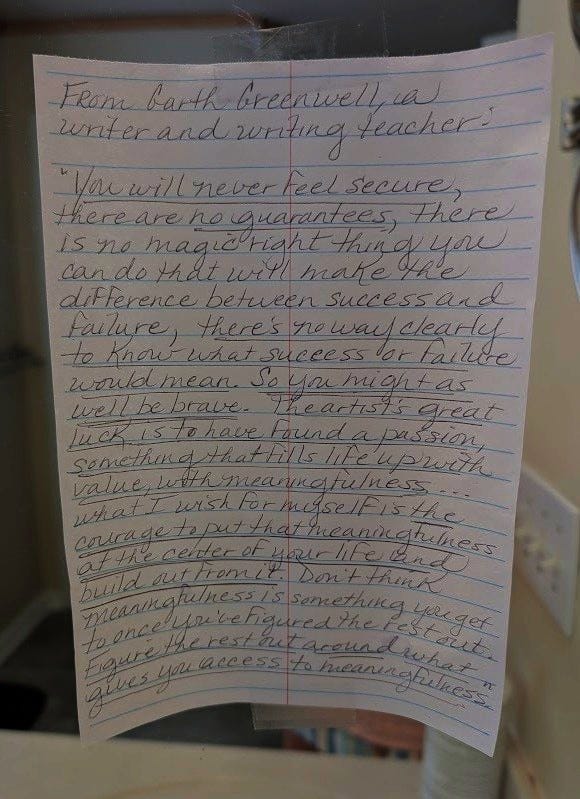 From Garth Greenwell, a
writer and writing teacher:
"You will never feel secure,
there are no guarantees, there
is no magic right thing you
can do that will make the
difference between success and
failure, there's no way clearly
to know what success or failure
would mean. So you might as
well be brave. The artist's great
luck is to have found a passion,
something that fills life up with
value, with meaningfulness ...
what I wish for myself is the
courage to put that meaningfulness
at the center of your life and
build out from it. Don't think
meaningfulness is something you get
to once you've figured the rest out.
Figure the rest out around what
gives you access to meaningfulness."